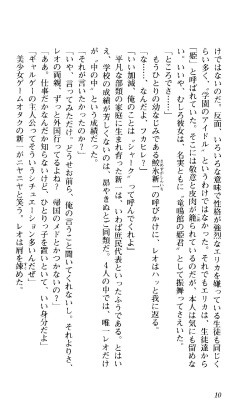 けではないのだ。反面、いろいろな意味で性格が強烈なエリカを嫌っている生徒も同じく
らい多く、「学園のアイドル」というわけではなかった。それでもエリカは、生徒達から
「姫」と呼ばれていた。そこには敬意と皮肉が籠められているのだが、本人は気にも留めな
い。いや、むしろ彼女は、名実ともに「竜鳴館の姫君」として振舞ってさえいた。
「とこでさ……」
もうひとりの幼なじみである鮫氷新一の呼びかけに、レオはハッと我に返る。
「な……、なんだよ、フカヒレ？」
「いい加減、俺のことは『シャーク』って呼んでくれよ」
平凡な部類の家庭に育まれ育った新一は、いわば庶民代表といったふうである。とはい
え、学校の成績が芳しくないのは、昴やきぬと同類だ。4人の中では、唯一レオだけ
が〝中の中〟という成績だった。
「それが言いたかったのか？」
「いや、言ってみただけ。どうせお前ら、俺の言うこと聞いてくれないし。それよりさ、
レオの両親、まだ外国行ってるよね？　帰国のメドとかつかないの？」
「ああ、仕事だかなんだか知らないけど、ひとりっ子を置いといて、いい身分だよ」
「ギャルゲーの主人公ってそういうシチュエーション多いんだぜ」
美少女ゲームオタクの新一がニヤニヤと笑う。レオは肘を竦めた。
10